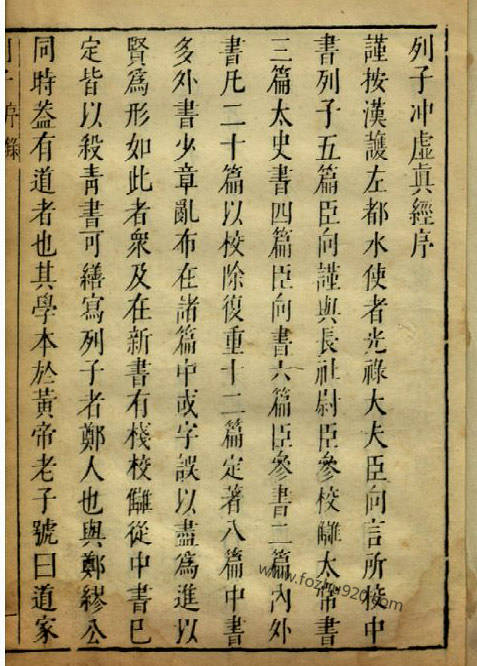 列子冲虛真經序
謹按漢護左都水使者光祿大夫臣向言所校中
書列子五篇臣向謹與長社尉臣參校讎太常書
三篇太史書四篇臣向書六篇臣參書二篇內外
書凡二十篇以校除復重十二篇定著八篇中書
多外書少章亂布在諸篇中或字誤以盡為進以
賢為形如此者衆及在新書有棧校讎從中書已
定皆以殺青書可繕寫列子者鄭人也與鄭繆公
同時蓋有道者也其學本於黃帝老子號曰道家
列子序錄 一
www.fozhu920.com